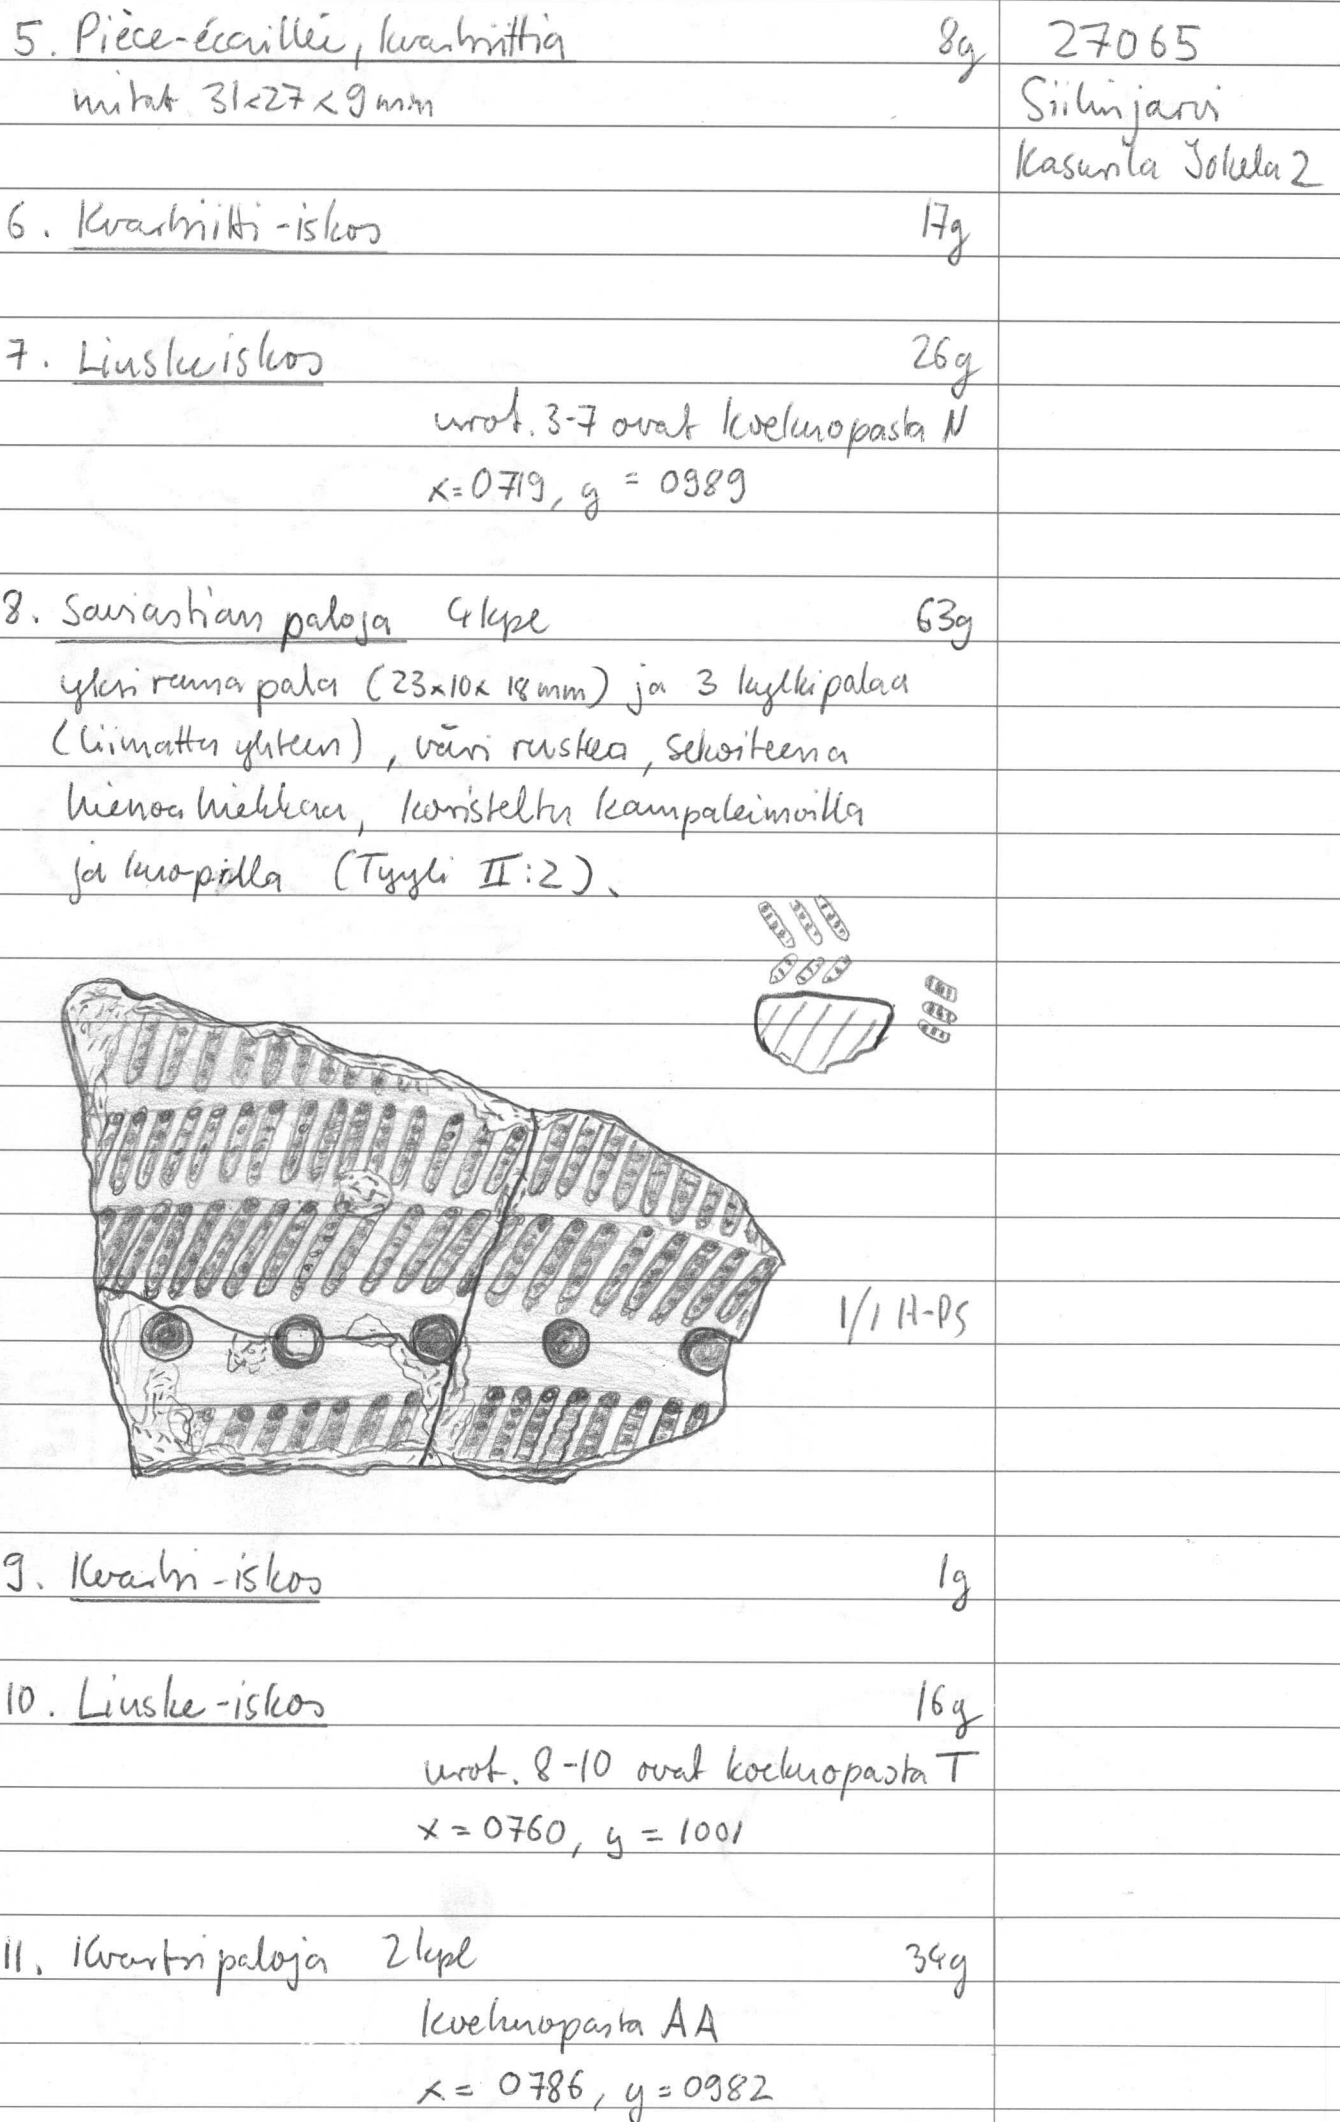 5. Pièce-écaillée, kvartsiittia 8g 27065
mitat 31x27x9mm Siilinjärvi
Kasurila Jokela 2
6. Kvartsiitti-iskos 17g
7. Liuskeiskos 26g
nrot. 3-7 ovat koekuopasta N
x=0719, y = 0989
8. Saviastian paloja 4 kpl 63g
yksi reunapala (23x10x18mm) ja 3 kylkipalaa
(liimattu yhteen), väri ruskea, sekoiteena
hienoa hiekkaa, koristeltu kampaleimoilla
ja kuopilla (Tyyli II:2).
1/1 H-PS
9. Kvartsi-iskos 1g
10. Liuske-iskos 16g
nrot. 8-10 ovat koekuopasta T
x = 0760, y = 1001
11. Kvartsipaloja 2 kpl 34g
koekuopasta AA
x = 0786, y = 0982